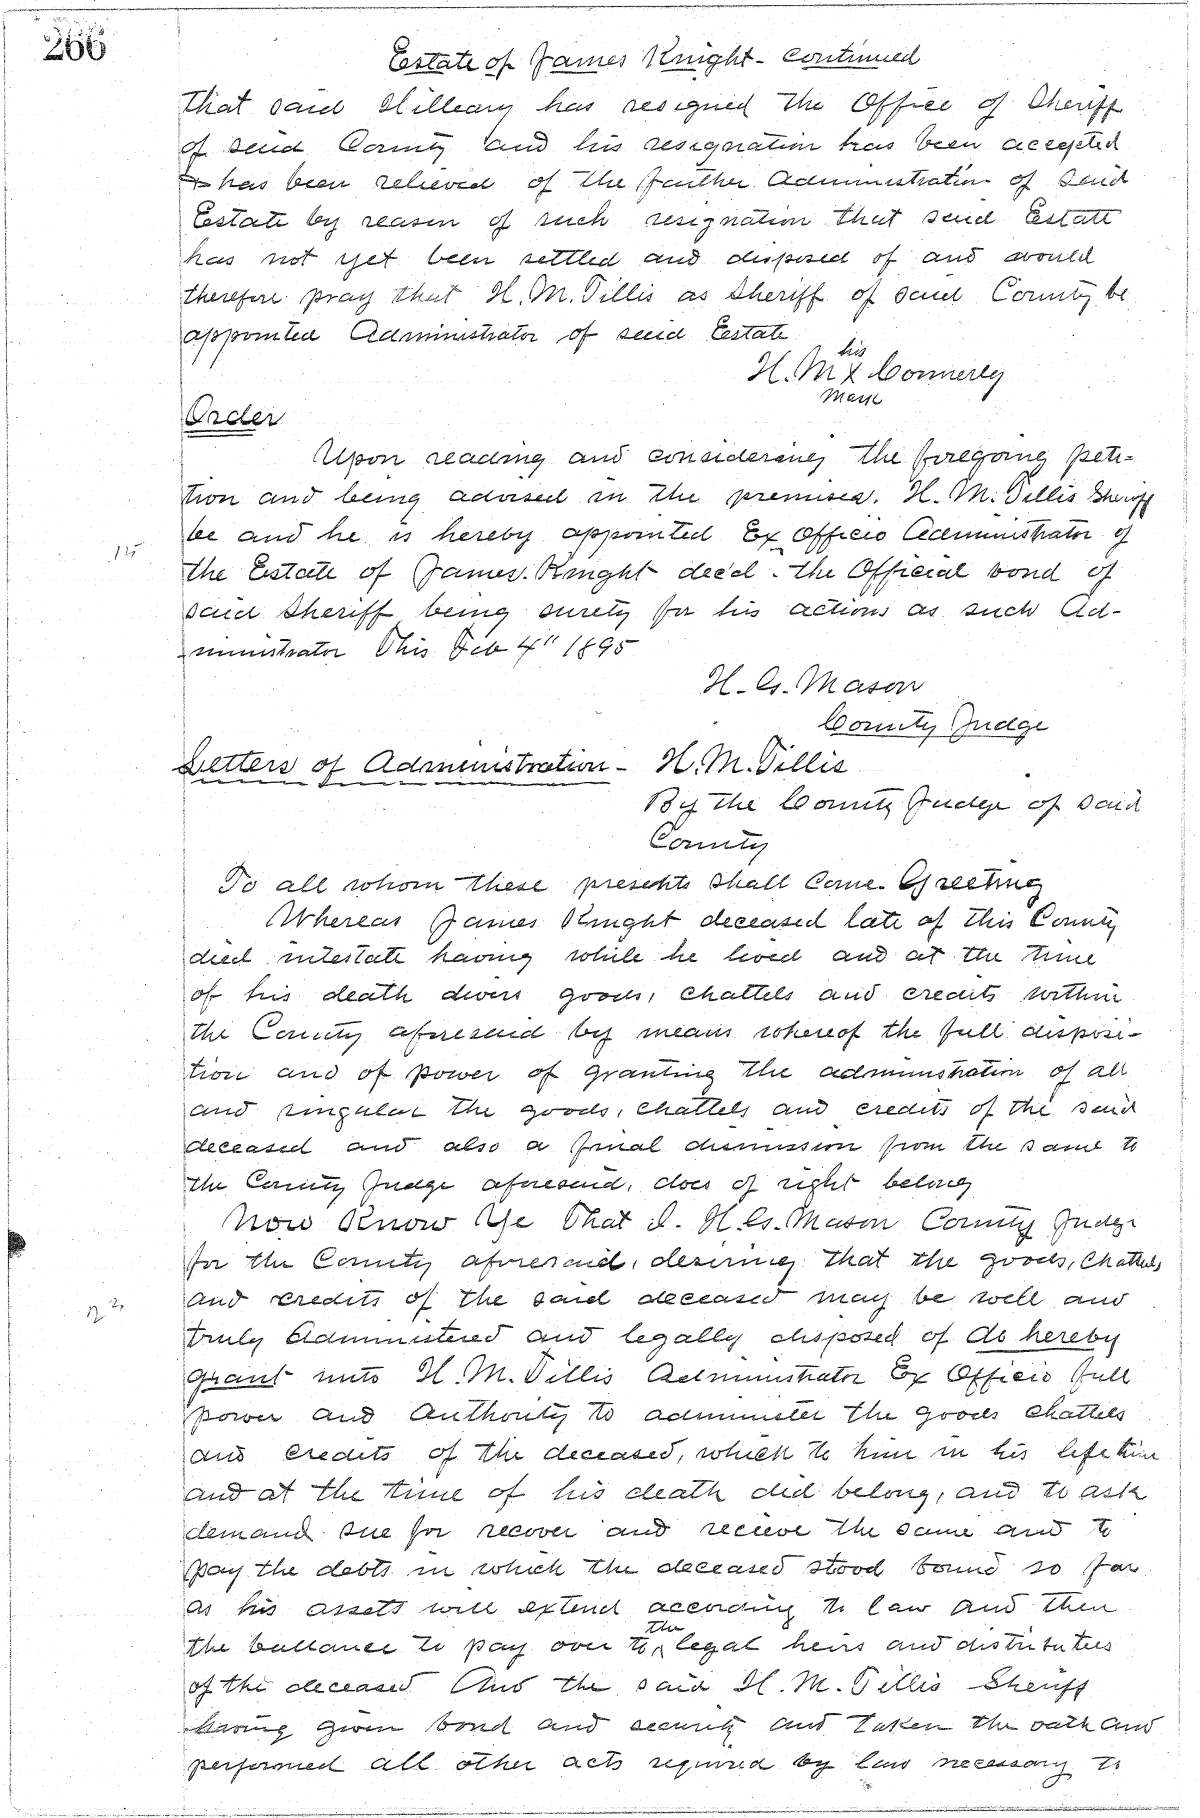 266
Estate of James Knight - continued
that said Hilleary has resigned the Office of Sheriff
of said County and his resignation has been accepted
& has been relieved of the further Administration of said
Estate by reason of such resignation that said Estate
has not yet been settled and disposed of and would
therefore pray that H. M. Tillis as Sheriff of said County be
appointed Administrator of said Estate
his
H. M X Connerly
mark
Order
Upon reading and considering the foregoing peti=
tion and being advised in the premises. H. M. Tillis Sheriff
be and he is hereby appointed Ex Officio Administrator of
125
the Estate of James Knight dec'd. the Official bond of
said Sheriff being surety for his actions as such Ad-
ministrator This Feb 4" 1895
H. G. Mason
County Judge
Letters of Administration - H. M. Tillis
By the County Judge of said
County
To all whom these presents shall come. Greeting
Whereas James Knight deceased late of this County
died intestate having while he lived and at the time
of his death divers goods, chattels and credits within
the County aforesaid by means whereof the full disposi-
tion and of power of granting the administration of all
and singular the goods, chattels and credits of the said
deceased and also a final dismission from the same to
the County Judge aforesaid, does of right belong
Now Know Ye That I. H. G. Mason County Judge
for the County aforesaid, desiring that the goods, chattels
and credits of the said deceased may be well and
truly Administered and legally disposed of do hereby
grant unto H. M. Tillis Administrator Ex Officio full
power and authority to administer the goods chattels
and credits of the deceased, which to him in his lifetime
and at the time of his death did belong, and to ask
demand sue for recover and recieve the same and to
pay the debts in which the deceased stood bound so far
as his assets will extend according to law and then
the ballance to pay over to the legal heirs and distributees
of the deceased And the said H. M. Tillis Sheriff
having given bond and security and taken the oath and
performed all other acts required by law necessary to